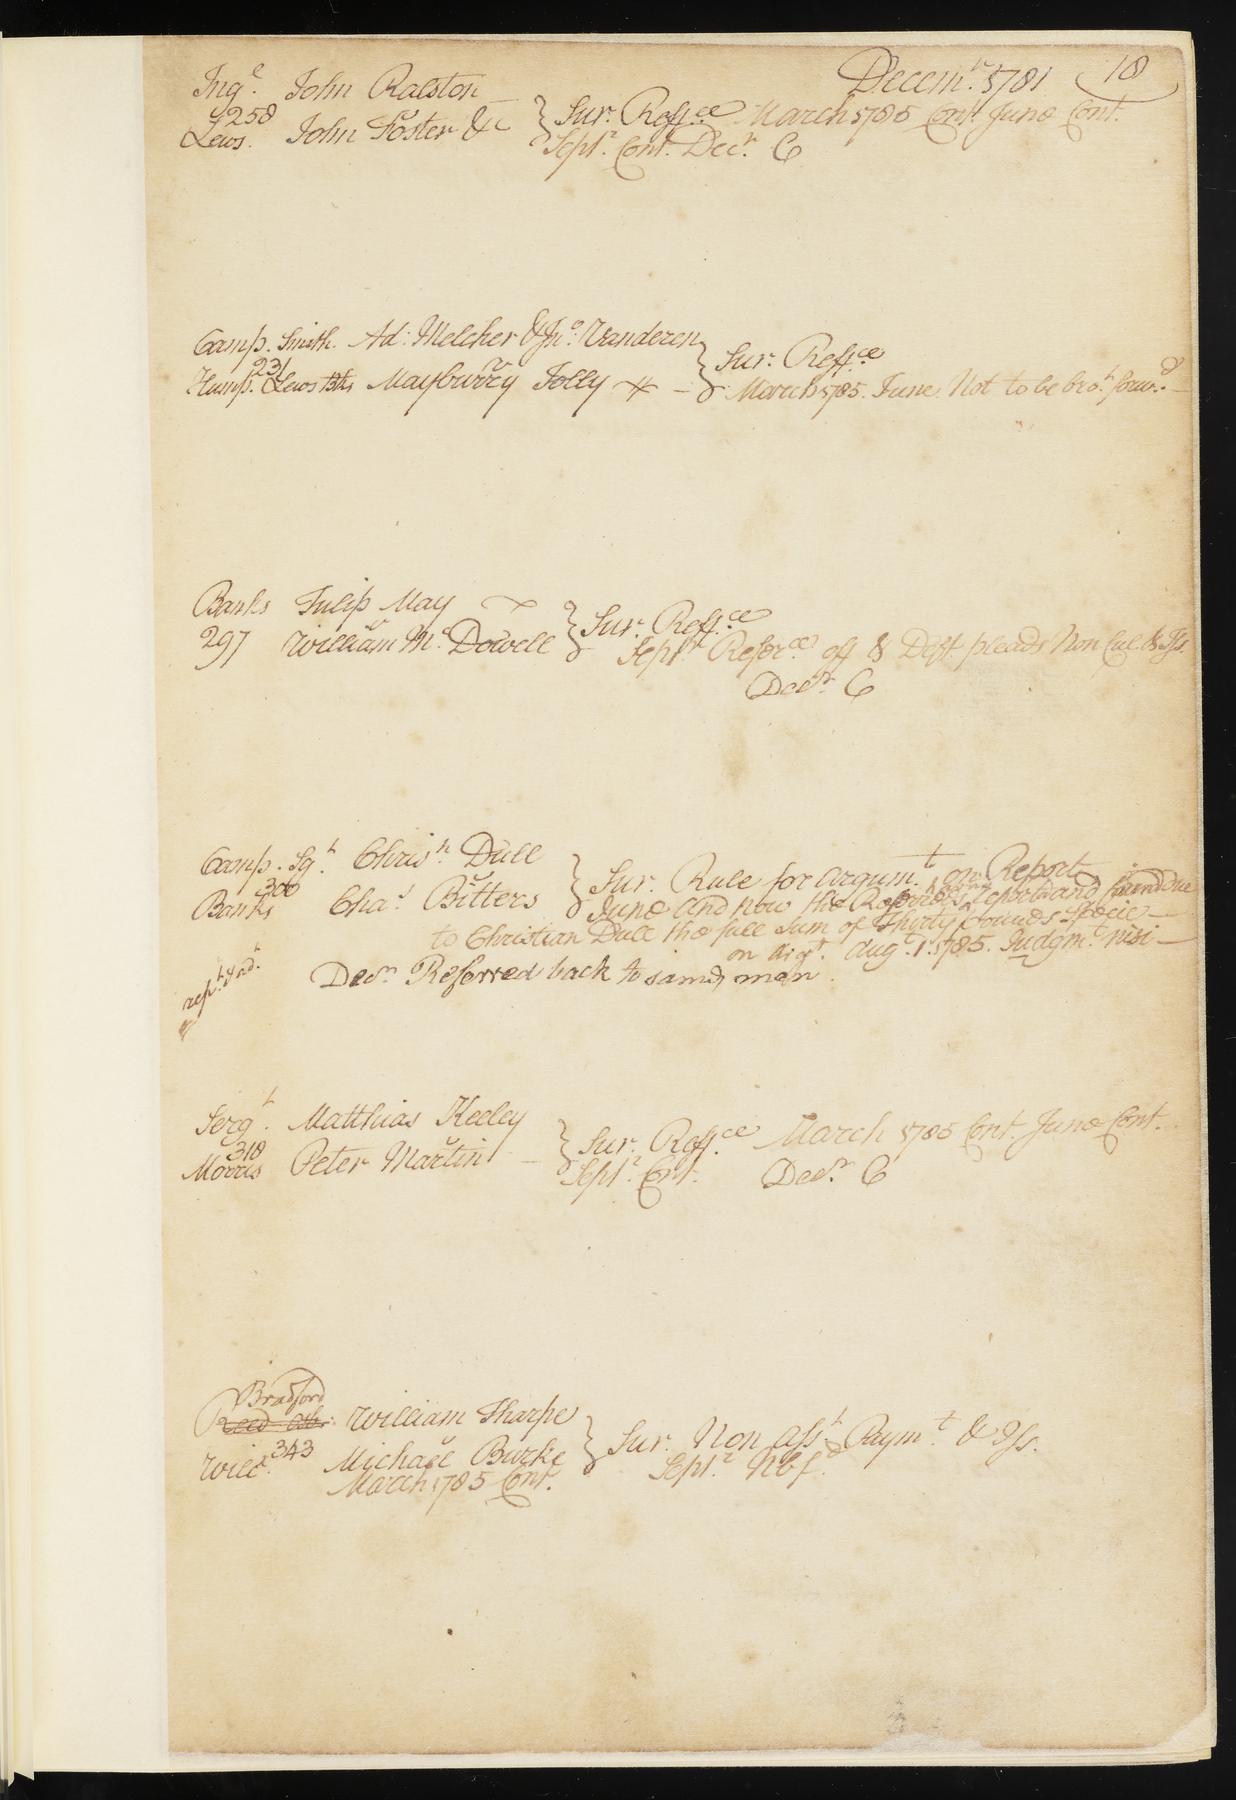 Decem.r 1781 18
Ing.e John Ralston
258
Lews. John Foster &c } Sur. Reff.ce March 1785 Cont. June Cont.
Sept.r Cont. Dec.r C
Camp. Smith. Ad: Melcher & Jn.o Vanderen
231
Hump. Lews Mayburry Jolly } Sur. Reff.ce
March 1785. June. Not to be bro.t forw.d
Banks Tulip May
297 William Mc. Dowell } Sur. Reff.ce
Sept.r Refer.ce off & Deft pleads Non Cul. & Iss.
Dec.r C
Camp. Sg.t Chris.n Dull
300
Banks Cha.s Bitters } Sur. Rule for argum.t on Report
June and now the Referrees having reported and found due
to Christian Dull the full sum of Thirty pounds specie
on Aug.t 1. 1785. Judgm.t nisi
Dec.r Referred back to same men.
rep.t
Serg.t Matthias Keeley
318
Morris Peter Martin } Sur. Reff.ce March 1785 Cont. June Cont.
Sept.r Cont. Dec.r C
Bradford
Reed William Tharpe
343
Will.s Michael Burke } Sur. Non Ass.t Paym.t & Iss.
March 1785 Cont. Sept.r Nbf.d